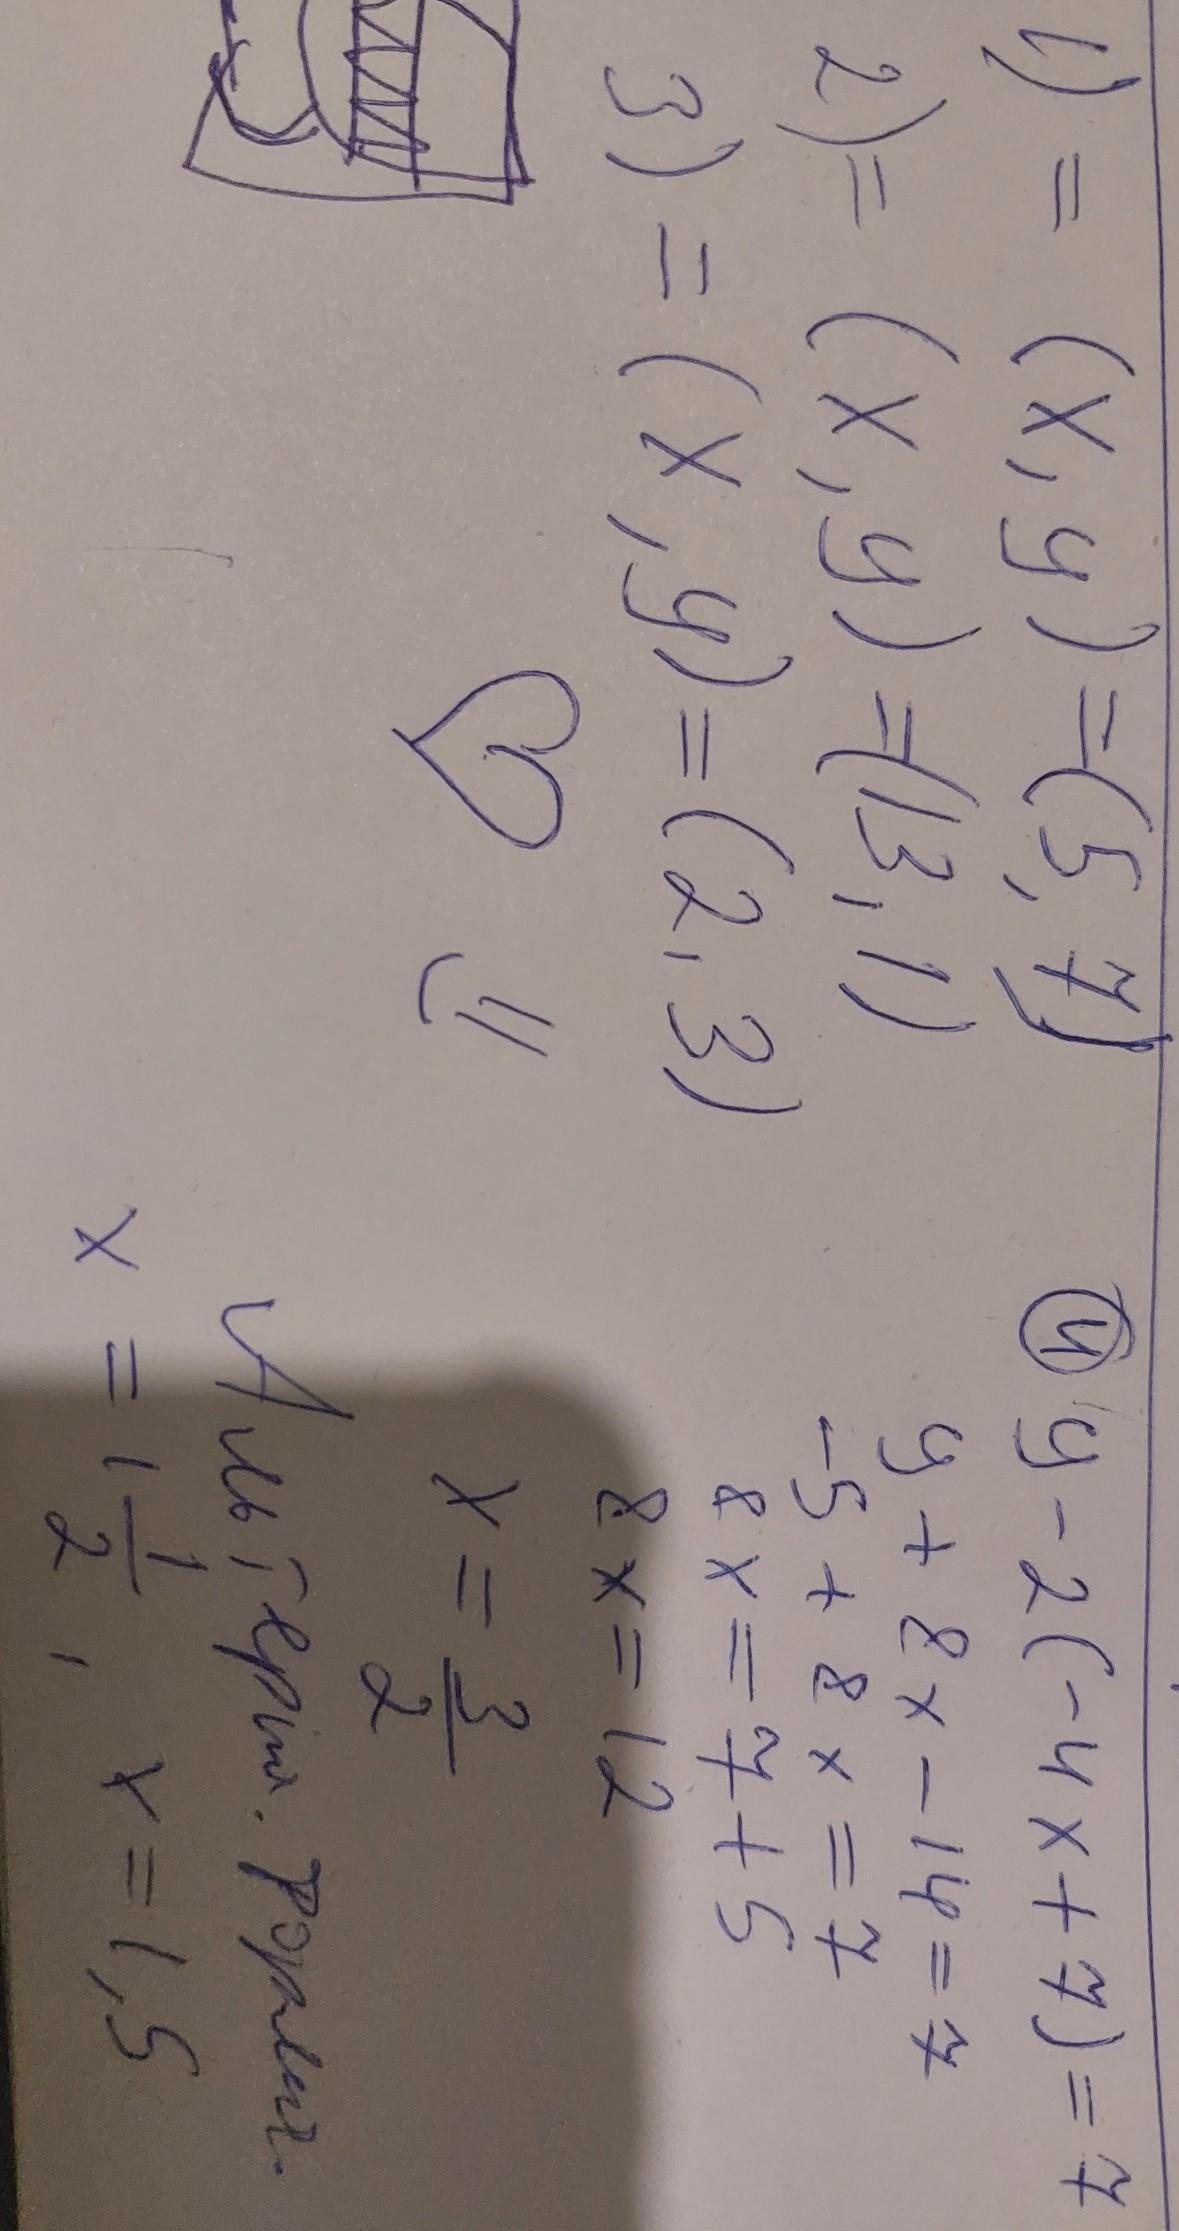 1) = (x, y) = (5, 7)
2) = (x, y) = (13, 1)
3) = (x, y) = (2, 3)
④ 9 - 2(-4x + 7) = 7
9 + 8x - 14 = 7
-5 + 8x = 7
8x = 7 + 5
8x = 12
x = 3/2
Альтерн. форма.
x = 1 1/2, x = 1,5